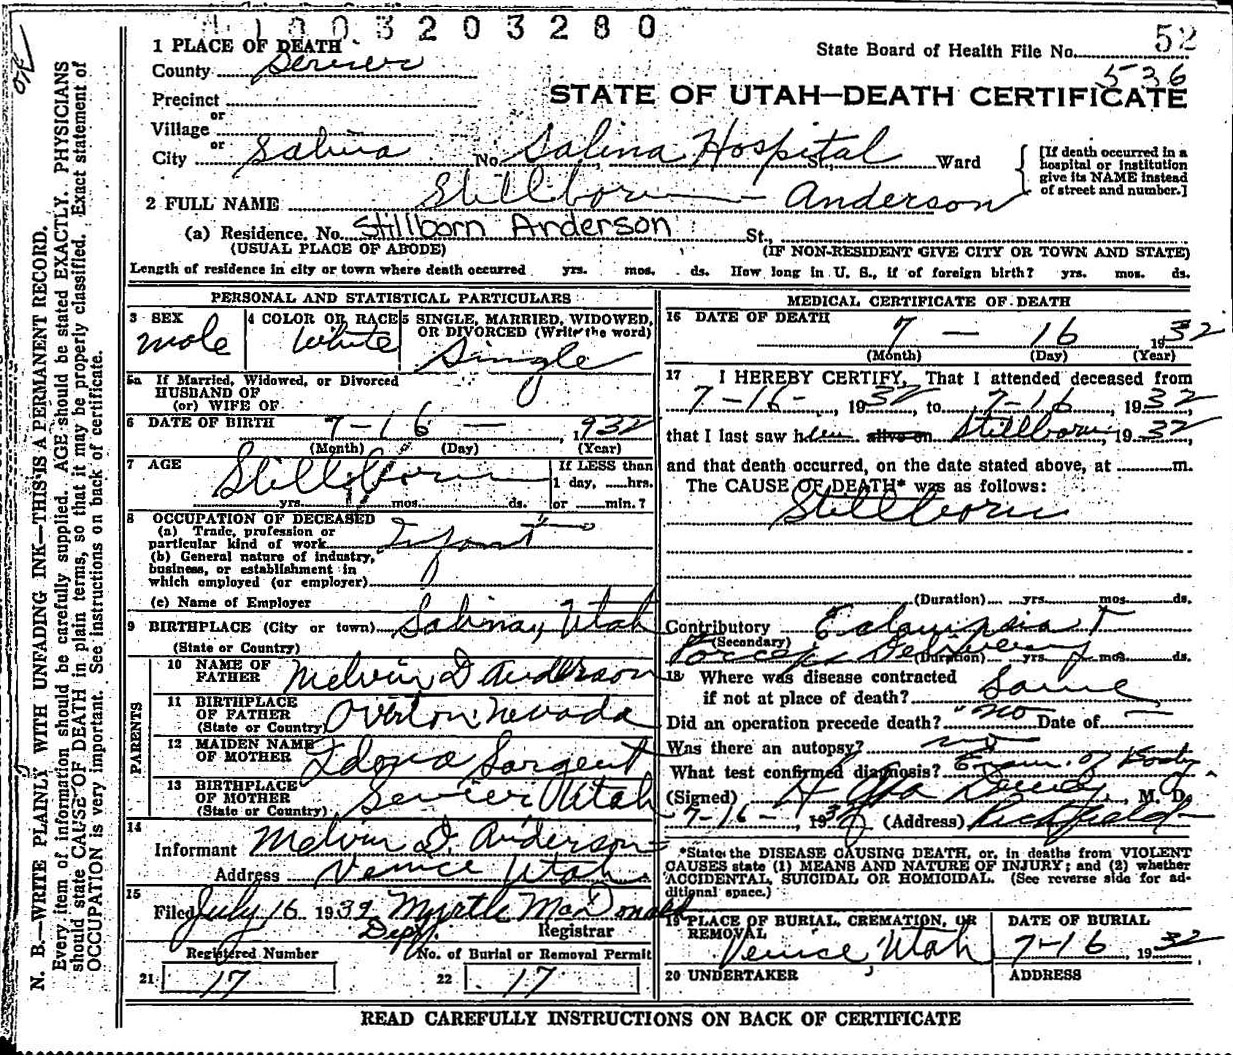 1003203280
52
1 PLACE OF DEATH
State Board of Health File No.
536
County Sevier
STATE OF UTAH—DEATH CERTIFICATE
Precinct
or
Village
or
City Salina No. Salina Hospital St., Ward
[If death occurred in a hospital or institution give its NAME instead of street and number.]
2 FULL NAME Stillborn — Anderson
(a) Residence. No. Stillborn Anderson St.,
(USUAL PLACE OF ABODE) (IF NON-RESIDENT GIVE CITY OR TOWN AND STATE)
Length of residence in city or town where death occurred yrs. mos. ds. How long in U. S., if of foreign birth? yrs. mos. ds.
PERSONAL AND STATISTICAL PARTICULARS
3 SEX
male
4 COLOR OR RACE
White
5 SINGLE, MARRIED, WIDOWED, OR DIVORCED (Write the word)
Single
5a If Married, Widowed, or Divorced
HUSBAND OF
(or) WIFE OF
6 DATE OF BIRTH 7-16- , 1932
(Month) (Day) (Year)
7 AGE
Stillborn
yrs. mos. ds.
If LESS than
1 day, ......hrs.
or ......min.?
8 OCCUPATION OF DECEASED
(a) Trade, profession or
particular kind of work Infant
(b) General nature of industry,
business, or establishment in
which employed (or employer)
(c) Name of Employer
9 BIRTHPLACE (City or town) Salina, Utah
(State or Country)
PARENTS
10 NAME OF FATHER Melvin D Anderson
11 BIRTHPLACE OF FATHER Overton, Nevada
(State or Country)
12 MAIDEN NAME OF MOTHER Idona Sargent
13 BIRTHPLACE OF MOTHER Sevier Utah
(State or Country)
14
Informant Melvin D. Anderson
Address Venice Utah
15
Filed July 16 1932 Myrtle MacDonald
Depy. Registrar
Registered Number No. of Burial or Removal Permit
21 17 22 17
MEDICAL CERTIFICATE OF DEATH
16 DATE OF DEATH
7 — 16 1932
(Month) (Day) (Year)
17 I HEREBY CERTIFY, That I attended deceased from
7-16- , 1932, to 7-16, 1932,
that I last saw him alive on Stillborn, 1932,
and that death occurred, on the date stated above, at m.
The CAUSE OF DEATH* was as follows:
Stillborn
(Duration) yrs. mos. ds.
Contributory Eclampsia +
(Secondary)
Forceps Delivery
(Duration) yrs. mos. ds.
18 Where was disease contracted
if not at place of death? Same
Did an operation precede death? no Date of —
Was there an autopsy? no
What test confirmed diagnosis? Exam. of Body
(Signed) H Asa Dewey, M. D.
7-16-, 1932 (Address) Richfield
*State the DISEASE CAUSING DEATH, or, in deaths from VIOLENT
CAUSES state (1) MEANS AND NATURE OF INJURY; and (2) whether
ACCIDENTAL, SUICIDAL OR HOMICIDAL. (See reverse side for ad-
ditional space.)
19 PLACE OF BURIAL, CREMATION, OR REMOVAL
Venice, Utah
DATE OF BURIAL
7-16, 1932
20 UNDERTAKER ADDRESS
READ CAREFULLY INSTRUCTIONS ON BACK OF CERTIFICATE
OK
N. B.—WRITE PLAINLY WITH UNFADING INK—THIS IS A PERMANENT RECORD.
Every item of information should be carefully supplied. AGE should be stated EXACTLY. PHYSICIANS
should state CAUSE OF DEATH in plain terms, so that it may be properly classified. Exact statement of
OCCUPATION is very important. See instructions on back of certificate.